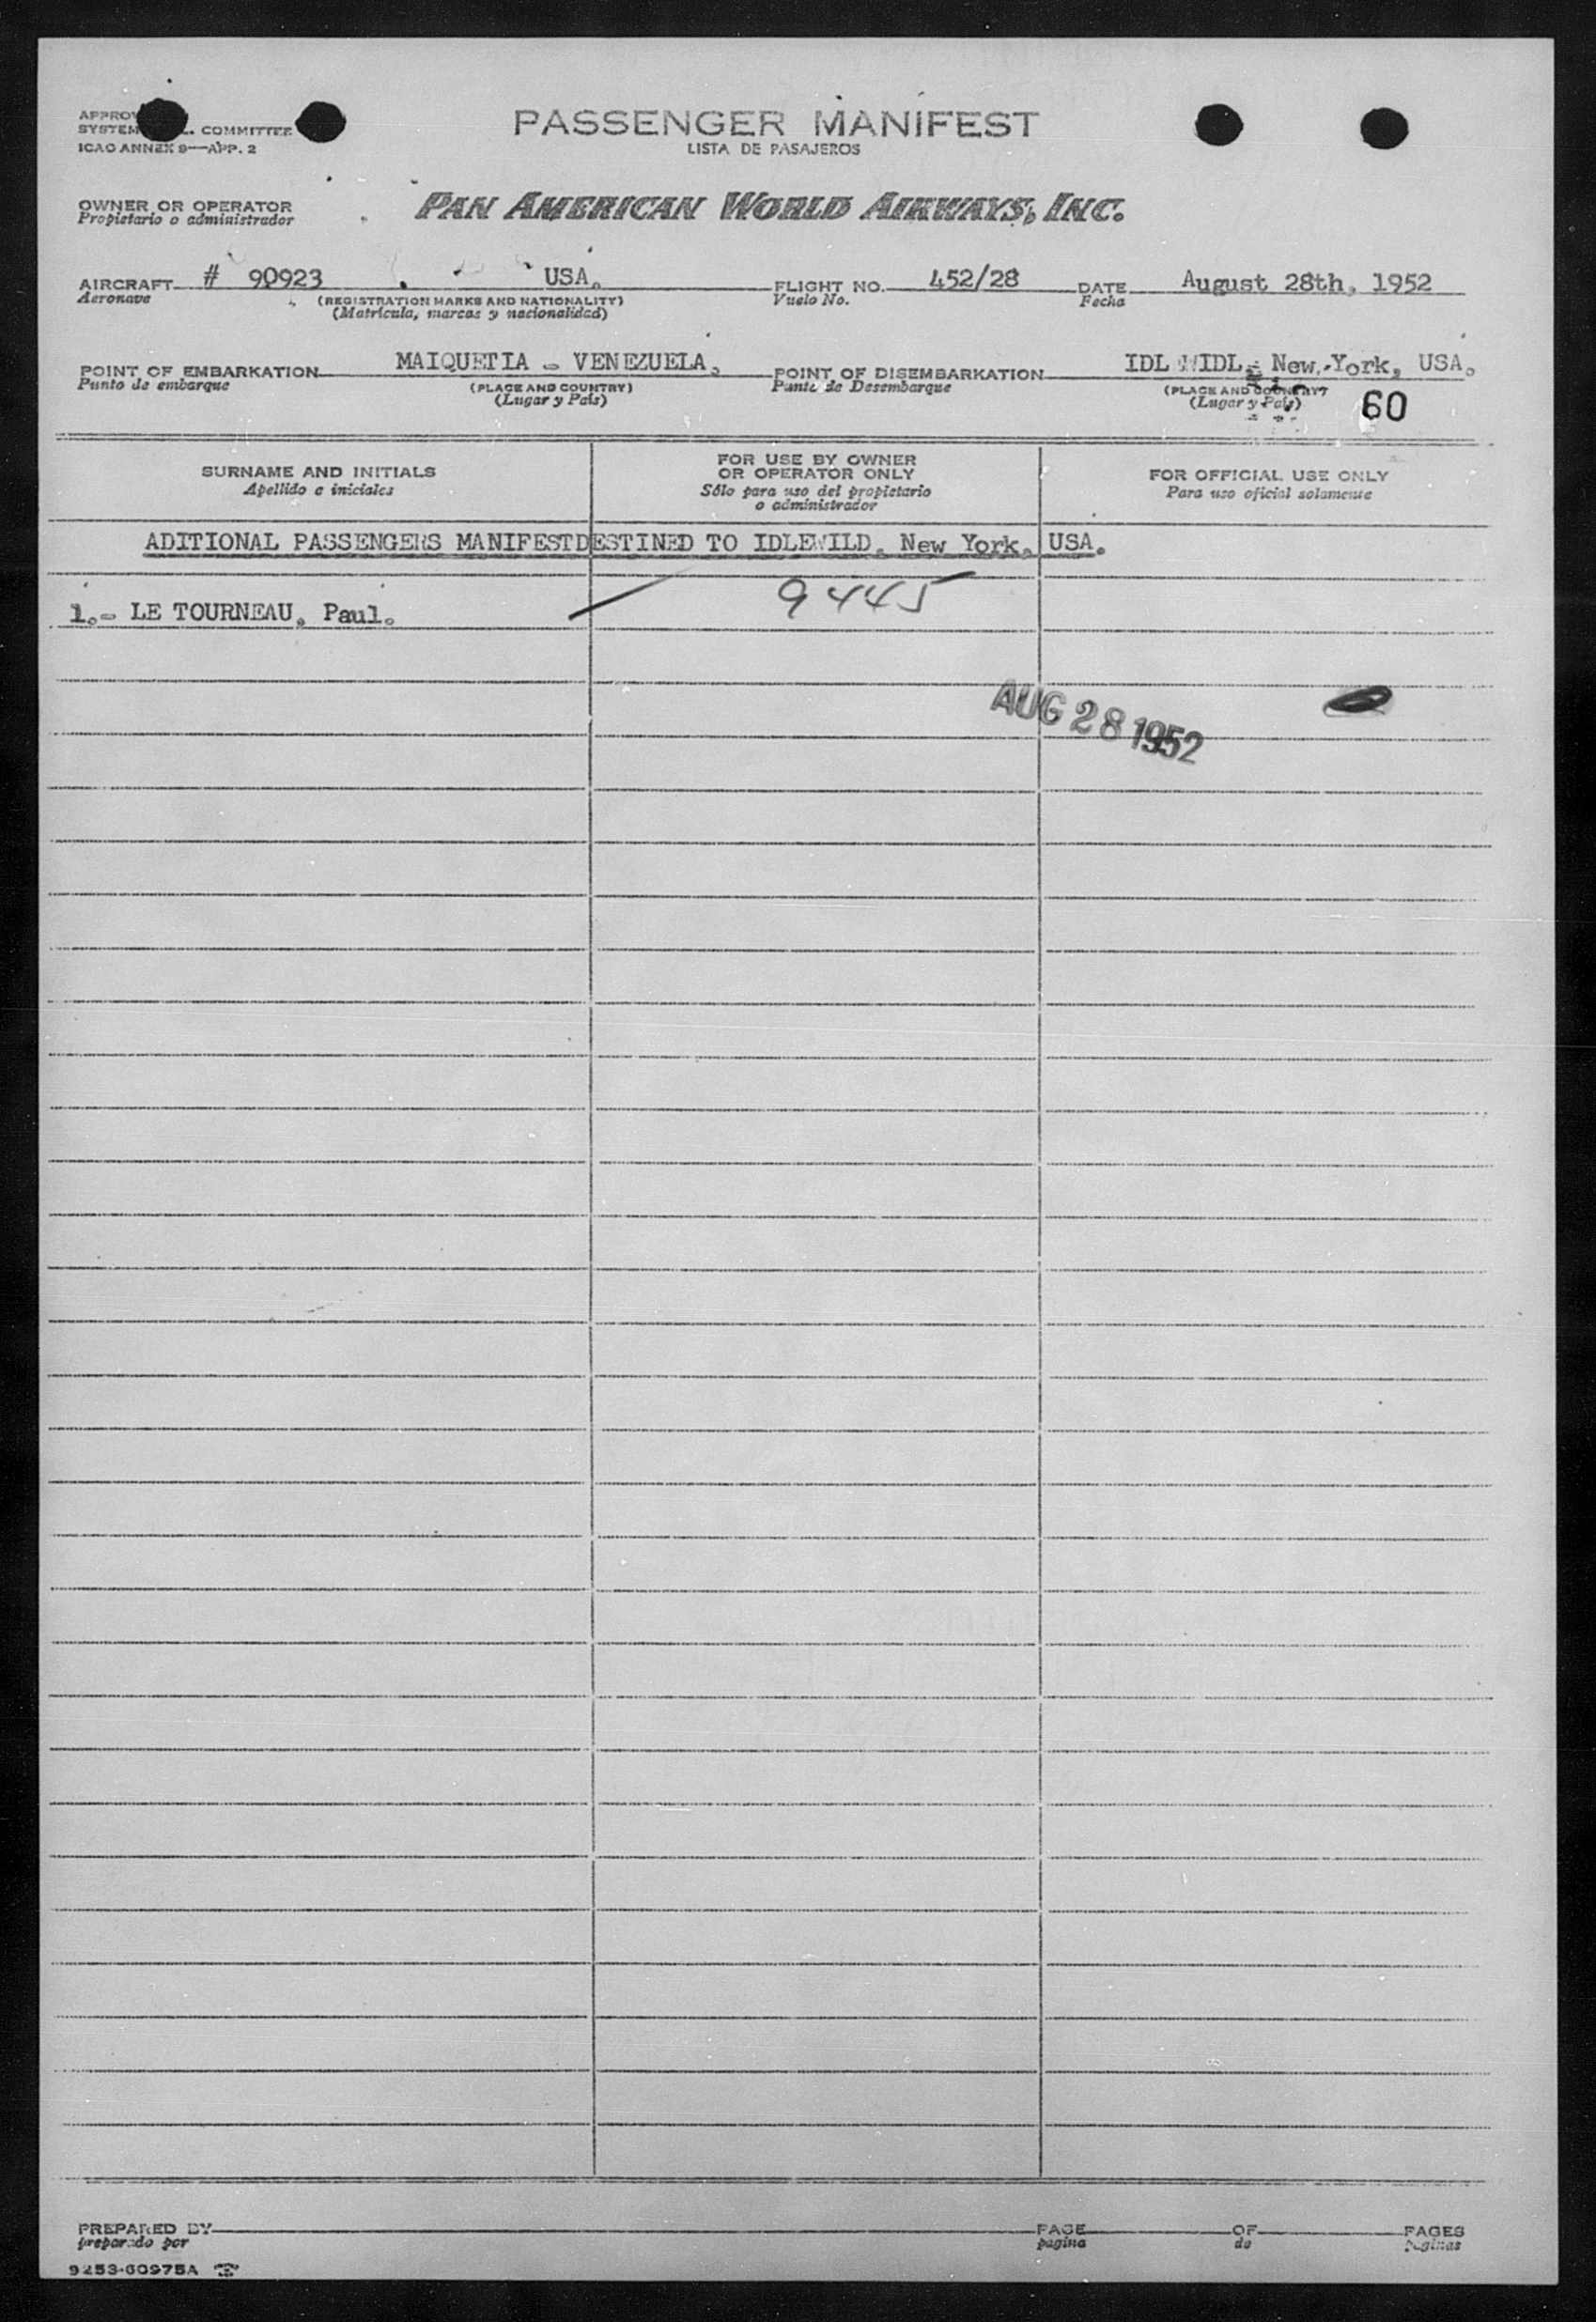 PASSENGER MANIFEST
LISTA DE PASAJEROS
SYSTEM COMMITTEE
ICAO ANNEX 9—APP. 2
OWNER OR OPERATOR
Propietario o administrador
PAN AMERICAN WORLD AIRWAYS, INC.
AIRCRAFT # 90923 USA. FLIGHT NO. 452/28 DATE August 28th, 1952
Aeronave (REGISTRATION MARKS AND NATIONALITY) Vuelo No. Fecha
(Matrícula, marcas y nacionalidad)
POINT OF EMBARKATION MAIQUETIA - VENEZUELA. POINT OF DISEMBARKATION IDL WIDL - New York, USA.
Punto de embarque (PLACE AND COUNTRY) Punto de Desembarque (PLACE AND COUNTRY)
(Lugar y País) (Lugar y País) 60
SURNAME AND INITIALS
Apellido e iniciales
FOR USE BY OWNER
OR OPERATOR ONLY
Sólo para uso del propietario
o administrador
FOR OFFICIAL USE ONLY
Para uso oficial solamente
ADITIONAL PASSENGERS MANIFESTDESTINED TO IDLEWILD, New York, USA.
1.- LE TOURNEAU, Paul. 9445
AUG 28 1952
PREPARED BY PAGE OF PAGES
preparado por página de páginas
9253-60975A